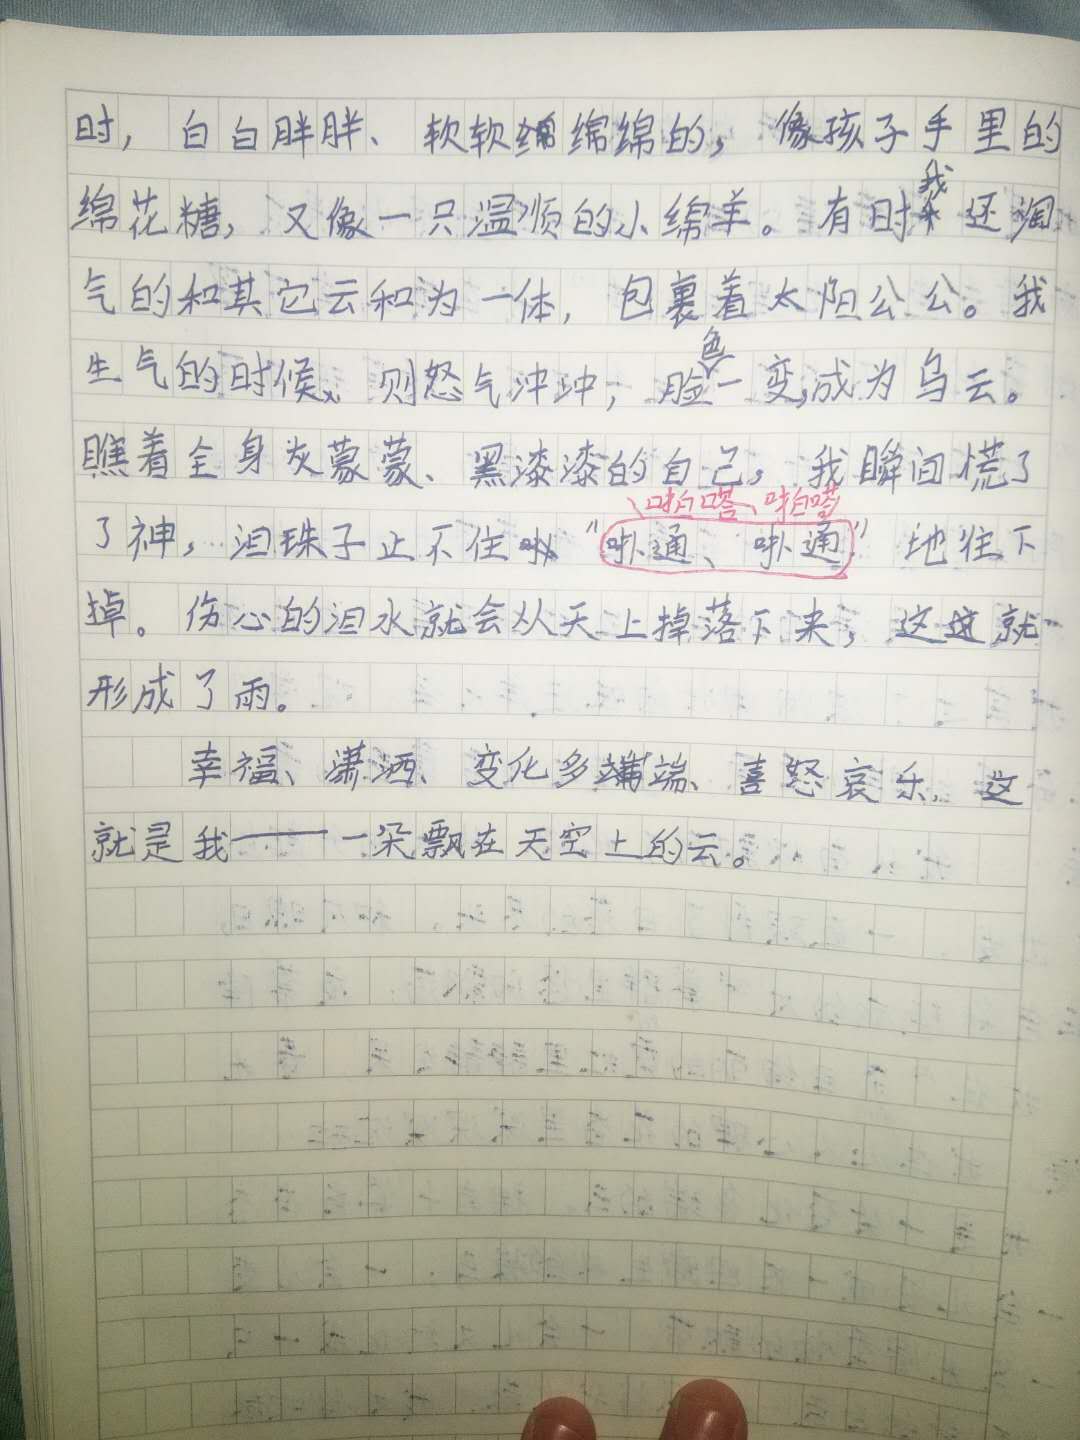 时，白白胖胖、软软绵绵的，像孩子手里的
绵花糖，又像一只温顺的小绵羊。有时我还淘
气的和其它云和为一体，包裹着太阳公公。我
生气的时候，则怒气冲冲，脸色一变，成为乌云。
瞧着全身灰蒙蒙、黑漆漆的自己，我瞬间慌了
啪嗒、啪嗒
了神，泪珠子止不住“哔通、哔通”地往下
掉。伤心的泪水就会从天上掉落下来，这就
形成了雨。
幸福、潇洒、变化多端、喜怒哀乐，这
就是我——一朵飘在天空上的云。